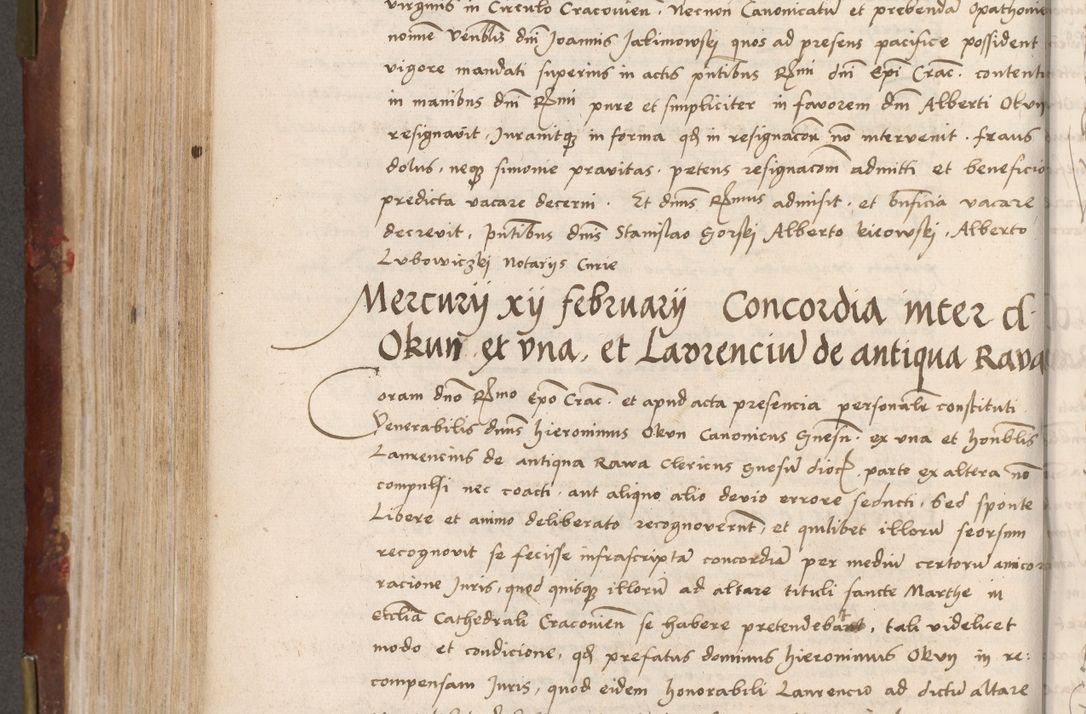 virginis in Circulo Cracovien. Necnon Canonicatu et prebenda Opathovien
nomine Venblis dni Joannis Jalimowskj quos ad presens pacifice possident
vigore mandati superius in actis pntibus Rmi dni Epi Crac. contenti
in manibus dni Rmi pure et simpliciter in favorem dni Alberti Okun
resignavit, Juravitq in forma qd in resignacoe no intervenit. fraus
dolus, neq simonie pravitas. petens resignacom admitti et beneficio
predicta vacare decerni. Et dnus Rmus admisit. et bnficia vacare
decrevit, pntibus dnis Stanislao Gorskj Alberto kieowskj, Alberto
Lvbowiczkj Notarijs Curie
Mercurij xij februarij Concordia inter cl.
Okun ex vna, et Lavrenciu de antiqua Rava
Coram dno Rmo Epo Crac. et apud acta presencia personalr constituti
Venerabilis dnus hieronimus Okun Canonicus Gnesn. ex vna et honblis
Laurencius de antiqua Rawa Clericus gnesn dioc. parte ex altera no
compulsi nec coacti. aut aliquo alio devio errore seducti, Sed sponte
Libere et animo deliberato recognoverunt, et quilibet illoru seorsum
recognovit se fecisse infrascripta concordia per mediu certoru amico
racione Juris, quod quisq illoru ad altare tituli sancte Marthe in
Ecclia Cathedrali Cracovien se habere pretendebat, tali videlicet
modo et condicione, qd prefatus dominus hieronimus Okun in re:
compensam Juris, quod eidem honorabili Laurencio ad dictu altare